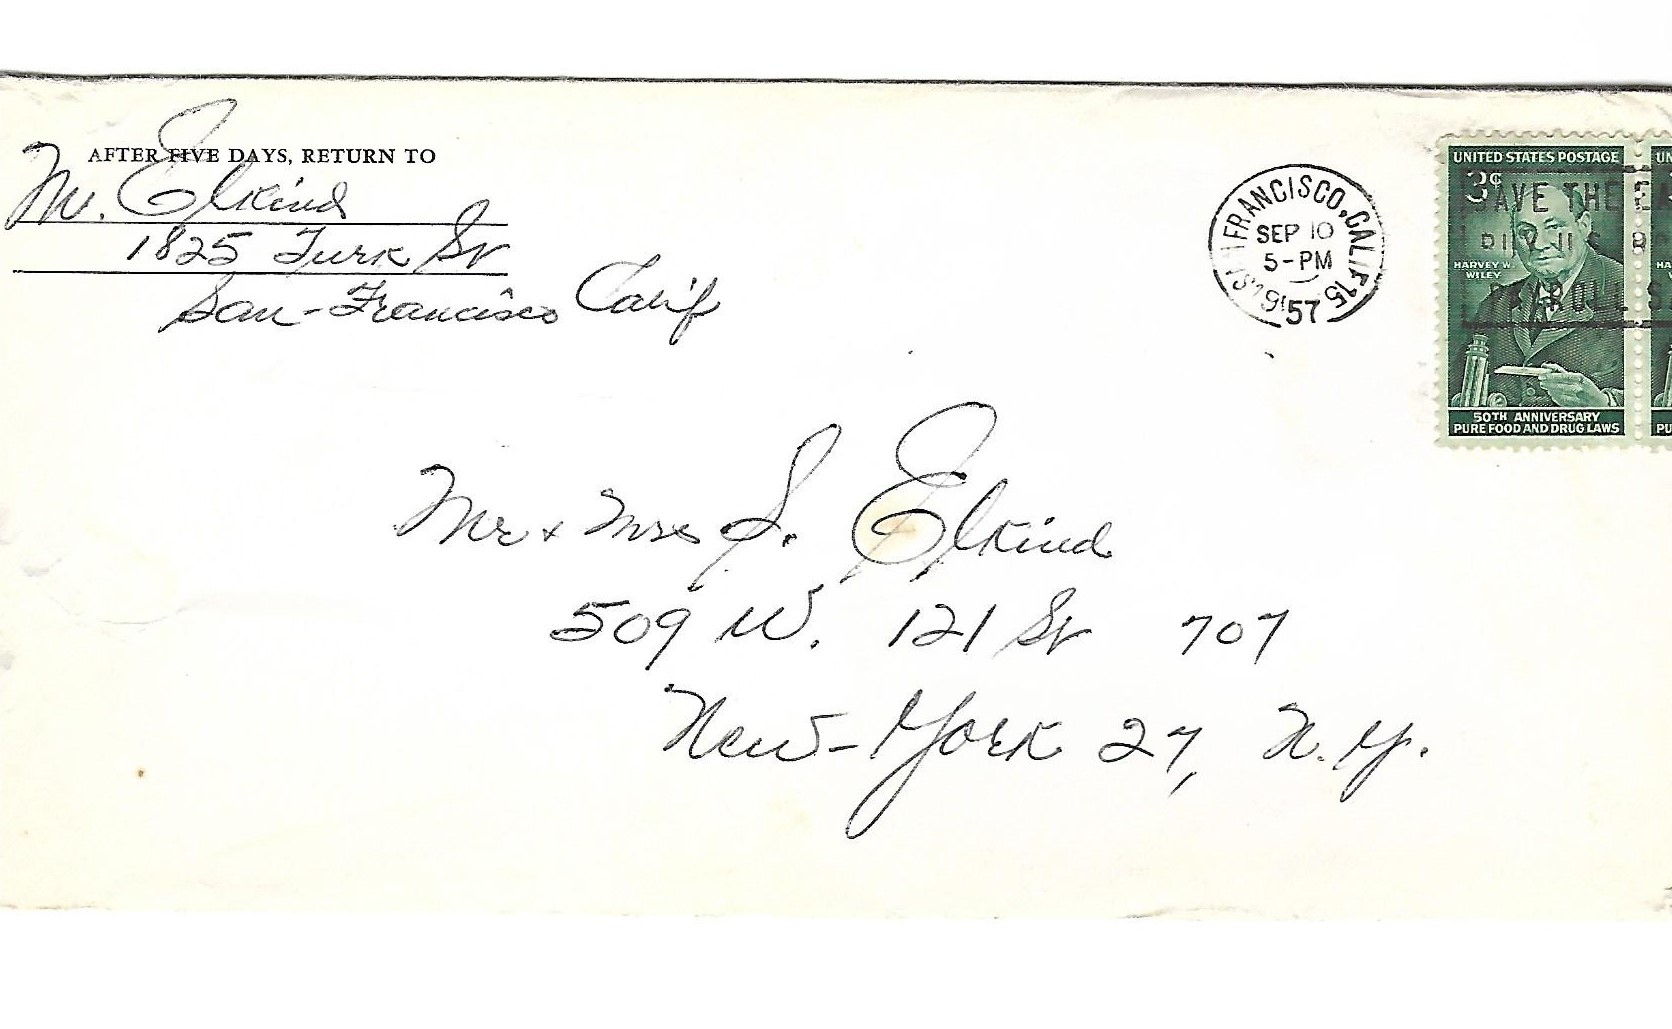 AFTER FIVE DAYS, RETURN TO
M. Elkind
1825 Turk St
San-Francisco Calif
SAN FRANCISCO, CALIF.
SEP 10
5-PM
1957
UNITED STATES POSTAGE
3¢
SAVE THE EA
BUY U.S. BO
PAYROLL S
HARVEY W.
WILEY
50TH ANNIVERSARY
PURE FOOD AND DRUG LAWS
UN
HA
PU
Mr & Mrs S. Elkind
509 W. 121 St 707
New-York 27, N.Y.